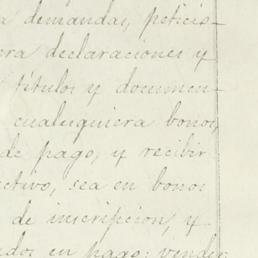 a demandas, peticio-
era declaraciones y
titulos y documen-
cualesquiera bonos,
de pago, y recibir
ectivo, sea en bonos
de inscripcion, y
ados en pago: vender